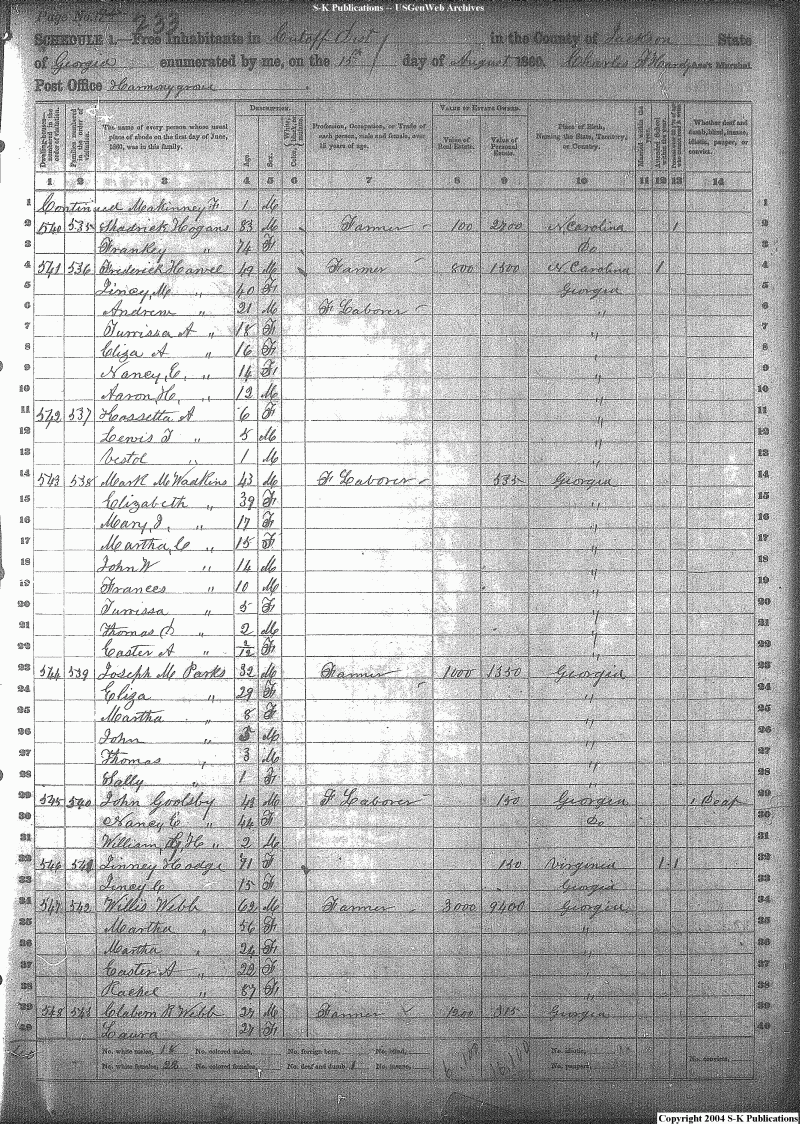 S-K Publications -- USGenWeb Archives
Page No. 233
SCHEDULE 1.—Free Inhabitants in Cutoff Dist in the County of Jackson State
of Georgia enumerated by me, on the 15th day of August 1860. Charles
Post Office Harmony grove
DESCRIPTION. VALUE OF ESTATE OWNED.
Dwelling-houses— numbered in the order of visitation.
Families numbered in the order of visitation.
The name of every person whose usual place of abode on the first day of June, 1860, was in this family.
Age. Sex. Color.
Profession, Occupation, or Trade of each person, male and female, over 15 years of age.
Value of Real Estate. Value of Personal Estate.
Place of Birth, Naming the State, Territory, or Country.
Married within the year. Attended School within the year.
Whether deaf and dumb, blind, insane, idiotic, pauper, or convict.
1 2 3 4 5 6 7 8 9 10 11 12 13 14
1 Continued Makinney F 1 M 1
2 540 535 Shadrick Hogans 83 M Farmer 100 2700 N Carolina 1 2
3 Frankey " 74 F Do 3
4 541 536 Frederick Harvel 49 M Farmer 800 1500 N Carolina 1 4
5 Lincy, M " 40 F Georgia 5
6 Andrew " 21 M F Laborer " 6
7 Turrissa A " 18 F " 7
8 Eliza A " 16 F " 8
9 Nancy, C, " 14 F " 9
10 Aaron H, " 12 M " 10
11 542 537 Hassetta A 6 F " 11
12 Lewis T " 5 M " 12
13 1 M " 13
14 543 538 Mark M Wadkins 43 M F Laborer 535 Georgia 14
15 Elizabeth " 39 F " 15
16 Mary, J, " 17 F " 16
17 Martha, C " 15 F " 17
18 John W " 14 M " 18
19 Frances " 10 M " 19
20 Turrissa " 5 F " 20
21 Thomas " 2 M " 21
22 Easter A " 2/12 F " 22
23 544 539 Joseph M Parks 32 M Farmer 1000 1350 Georgia 23
24 Eliza " 29 F " 24
25 Martha " 8 F " 25
26 John " 5 M " 26
27 Thomas " 3 M " 27
28 Sally " 1 F " 28
29 545 540 John Goolsby 43 M F Laborer 150 Georgia Deaf 29
30 Nancy C " 44 F Do 30
31 William H " 2 M 31
32 546 541 Linney Hodge 71 F 150 Virginia 1 1 32
33 Lincy C 15 F Georgia 33
34 547 542 Willis Webb 62 M Farmer 3000 9400 Georgia 34
35 Martha " 56 F " 35
36 Martha " 24 F 36
37 Easter A " 22 F 37
38 Rachel " 87 F " 38
39 548 543 Clabern R Webb 27 M Farmer 1200 315 Georgia 39
40 Laura 27 F 40
No. white males, 18 No. colored males, No. foreign born, No. blind, No. idiotic, No. convicts,
No. white females, 22 No. colored females, No. deaf and dumb, 1 No. insane, No. paupers,
Copyright 2004 S-K Publications